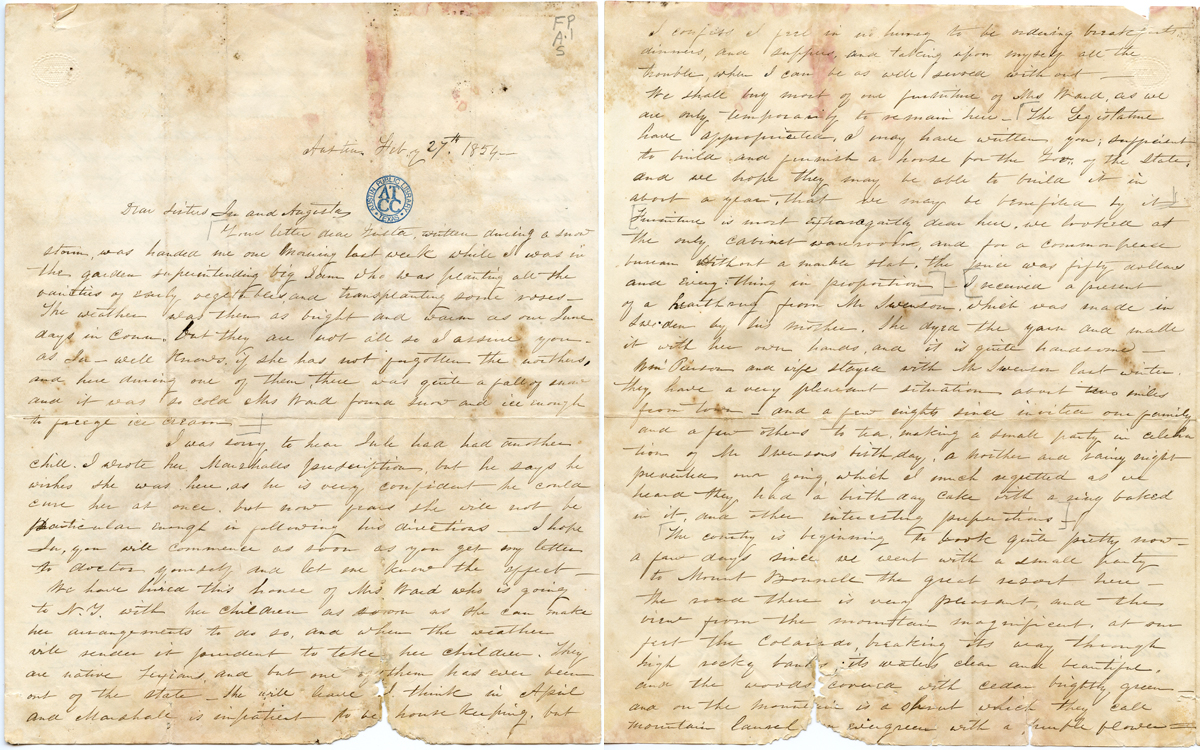 FP
A.1
S
Austin Feb.y 27th. 1854—
AUSTIN PUBLIC LIBRARY
ATCC
TEXAS
Dear Sisters Ju and Augusta
Your letter dear Julia, written during a snow
storm, was handed me one morning last week while I was in
the garden superintending big Jim who was planting all the
varieties of early vegetables and transplanting some roses—
The weather was then as bright and warm as our June
days in Conn. but they are not all so I assure you—
as Ju— well knows, if she has not forgotten the northers,
and here during one of them there was quite a fall of snow
and it was so cold Mrs Ward found snow and ice enough
to freeze ice cream—
I was sorry to hear Jule had had another
chill. I wrote her Marshalls prescription, but he says he
wishes she was here, as he is very confident he could
cure her at once. but now fears she will not be
particular enough in following his directions— I hope
Ju, you will commence as soon as you get my letter
to doctor yourself and let me know the effect—
We have hired this house of Mrs Ward who is going
to N.Y. with her children as soon as she can make
her arrangements to do so, and when the weather
will render it prudent to take her children. They
are native Texians, and but one of them has ever been
out of the state— She will leave I think in April
and Marshall is impatient to be housekeeping, but
I confess I feel in no hurry to be ordering breakfasts
dinners, and suppers, and taking upon myself all the
trouble, when I can be as well served without—
We shall buy most of our furniture of Mrs Ward, as we
are only temporarily to remain here— The Legislature
have appropriated, I may have written you, sufficient
to build and furnish a house for the Gov. of the State,
and we hope they may be able to build it in
about a year, that we may be benefited by it—
Furniture is most extravagantly dear here, we looked at
the only cabinet warerooms, and for a common
bureau without a marble slab, the price was fifty dollars
and every thing in proportion— I received a present
of a hearthrug from Mr Swenson, which was made in
Sweden by his mother. She dyed the yarn and made
it with her own hands, and it is quite handsome—
Wm Pierson and wife stayed with Mr Swenson last winter.
they have a very pleasant situation about two miles
from town— and a few nights since invited our family
and a few others to tea, making a small party in celebra
tion of Mr Swensons birth day, a norther and rainy night
prevented our going, which I much regretted as we
heard they had a birth day cake with a ring baked
in it, and other interesting preparations—
The country is beginning to look quite pretty now—
a few days since we went with a small party
to Mount Bonnell the great resort here—
the road there is very pleasant, and the
view from the mountain magnificent, at our
feet the Colorado, breaking its way through
high rocky banks its waters clear and beautiful,
and the woods covered with cedar brightly green—
and on the mountain is a shrub which they call
mountain laurel an evergreen with a purple flower—